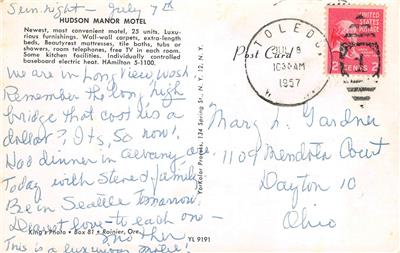 Sun. night - July 7th
HUDSON MANOR MOTEL
Newest, most convenient motel, 25 units. Luxu-
rious furnishings. Wall-wall carpets, extra-length
beds. Beautyrest mattresses, tile baths, tubs or
showers, room telephones, free TV in each room.
Some kitchen facilities. Individually controlled
baseboard electric heat. HAmilton 5-1100.
We are in Long View Wash.
Remember the long, high
bridge that cost us a
dollar? It's, 80 now!
Had dinner in Albany, Ore.
Today with Steve & family
Be in Seattle Tomorrow.
Dearest love - to each one -
Mother
King's Photo • Box 81 • Rainier, Ore.
This is a luxurious motel!
YL 9191
YorKolor Process, 134 Spring St., N. Y. 12, N. Y.
Post Card
TOLEDO
JUL 8
10 30 AM
1957
UNITED STATES POSTAGE
2 CENTS 2
Mary L. Gardner
1109 Mendota Court
Dayton 10
Ohio